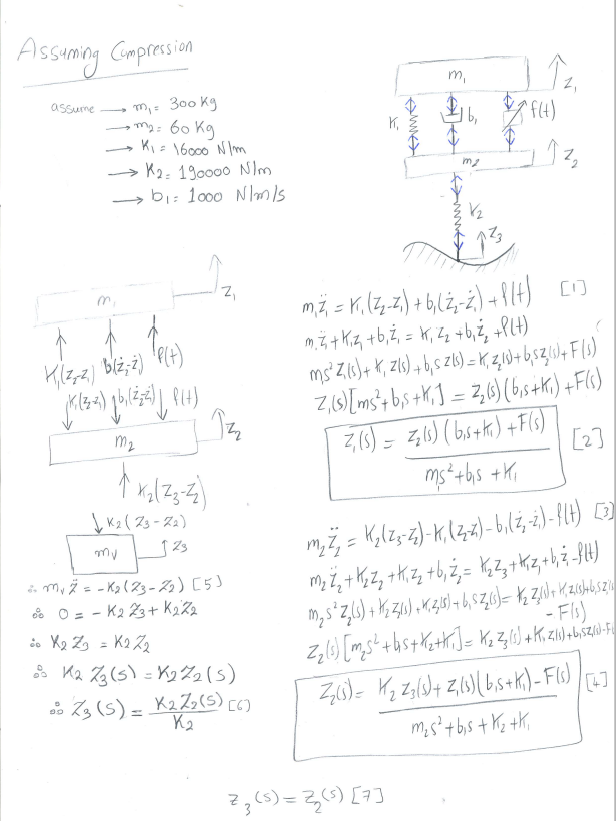 Assuming Compression
assume → m₁ = 300 Kg
→ m₂ = 60 Kg
→ K₁ = 16000 N/m
→ K₂ = 190000 N/m
→ b₁ = 1000 N/m/s
m₁
Z₁
K₁
b₁
f(t)
m₂
Z₂
K₂
Z₃
m₁
Z₁
K₁(Z₂-Z₁) b₁(ż₂-ż₁) f(t)
K₁(Z₂-Z₁) b₁(ż₂-ż₁) f(t)
m₂
Z₂
K₂(Z₃-Z₂)
K₂(Z₃-Z₂)
mᵥ
Z₃
∴ mᵥ z̈ = -K₂(Z₃-Z₂) [5]
∴ 0 = -K₂Z₃ + K₂Z₂
∴ K₂Z₃ = K₂Z₂
∴ K₂ Z₃(s) = K₂Z₂(s)
∴ Z₃(s) = K₂Z₂(s) / K₂ [6]
m₁z̈₁ = K₁(Z₂-Z₁) + b₁(ż₂-ż₁) + f(t) [1]
m₁z̈₁ + K₁Z₁ + b₁ż₁ = K₁Z₂ + b₁ż₂ + f(t)
ms²Z₁(s) + K₁Z(s) + b₁sZ(s) = K₁Z₂(s) + b₁sZ₂(s) + F(s)
Z₁(s)[ms² + b₁s + K₁] = Z₂(s)(b₁s + K₁) + F(s)
Z₁(s) = Z₂(s)(b₁s + K₁) + F(s) / m₁s² + b₁s + K₁ [2]
m₂z̈₂ = K₂(Z₃-Z₂) - K₁(Z₂-Z₁) - b₁(ż₂-ż₁) - f(t) [3]
m₂z̈₂ + K₂Z₂ + K₁Z₂ + b₁ż₂ = K₂Z₃ + K₁Z₁ + b₁ż₁ - f(t)
m₂s²Z₂(s) + K₂Z₂(s) + K₁Z₂(s) + b₁sZ₂(s) = K₂Z₃(s) + K₁Z₁(s) + b₁sZ₁(s)
- F(s)
Z₂(s)[m₂s² + b₁s + K₂ + K₁] = K₂Z₃(s) + K₁Z₁(s) + b₁sZ₁(s) - F(
Z₂(s) = K₂Z₃(s) + Z₁(s)(b₁s + K₁) - F(s) / m₂s² + b₁s + K₂ + K₁ [4]
Z₃(s) = Z₂(s) [7]